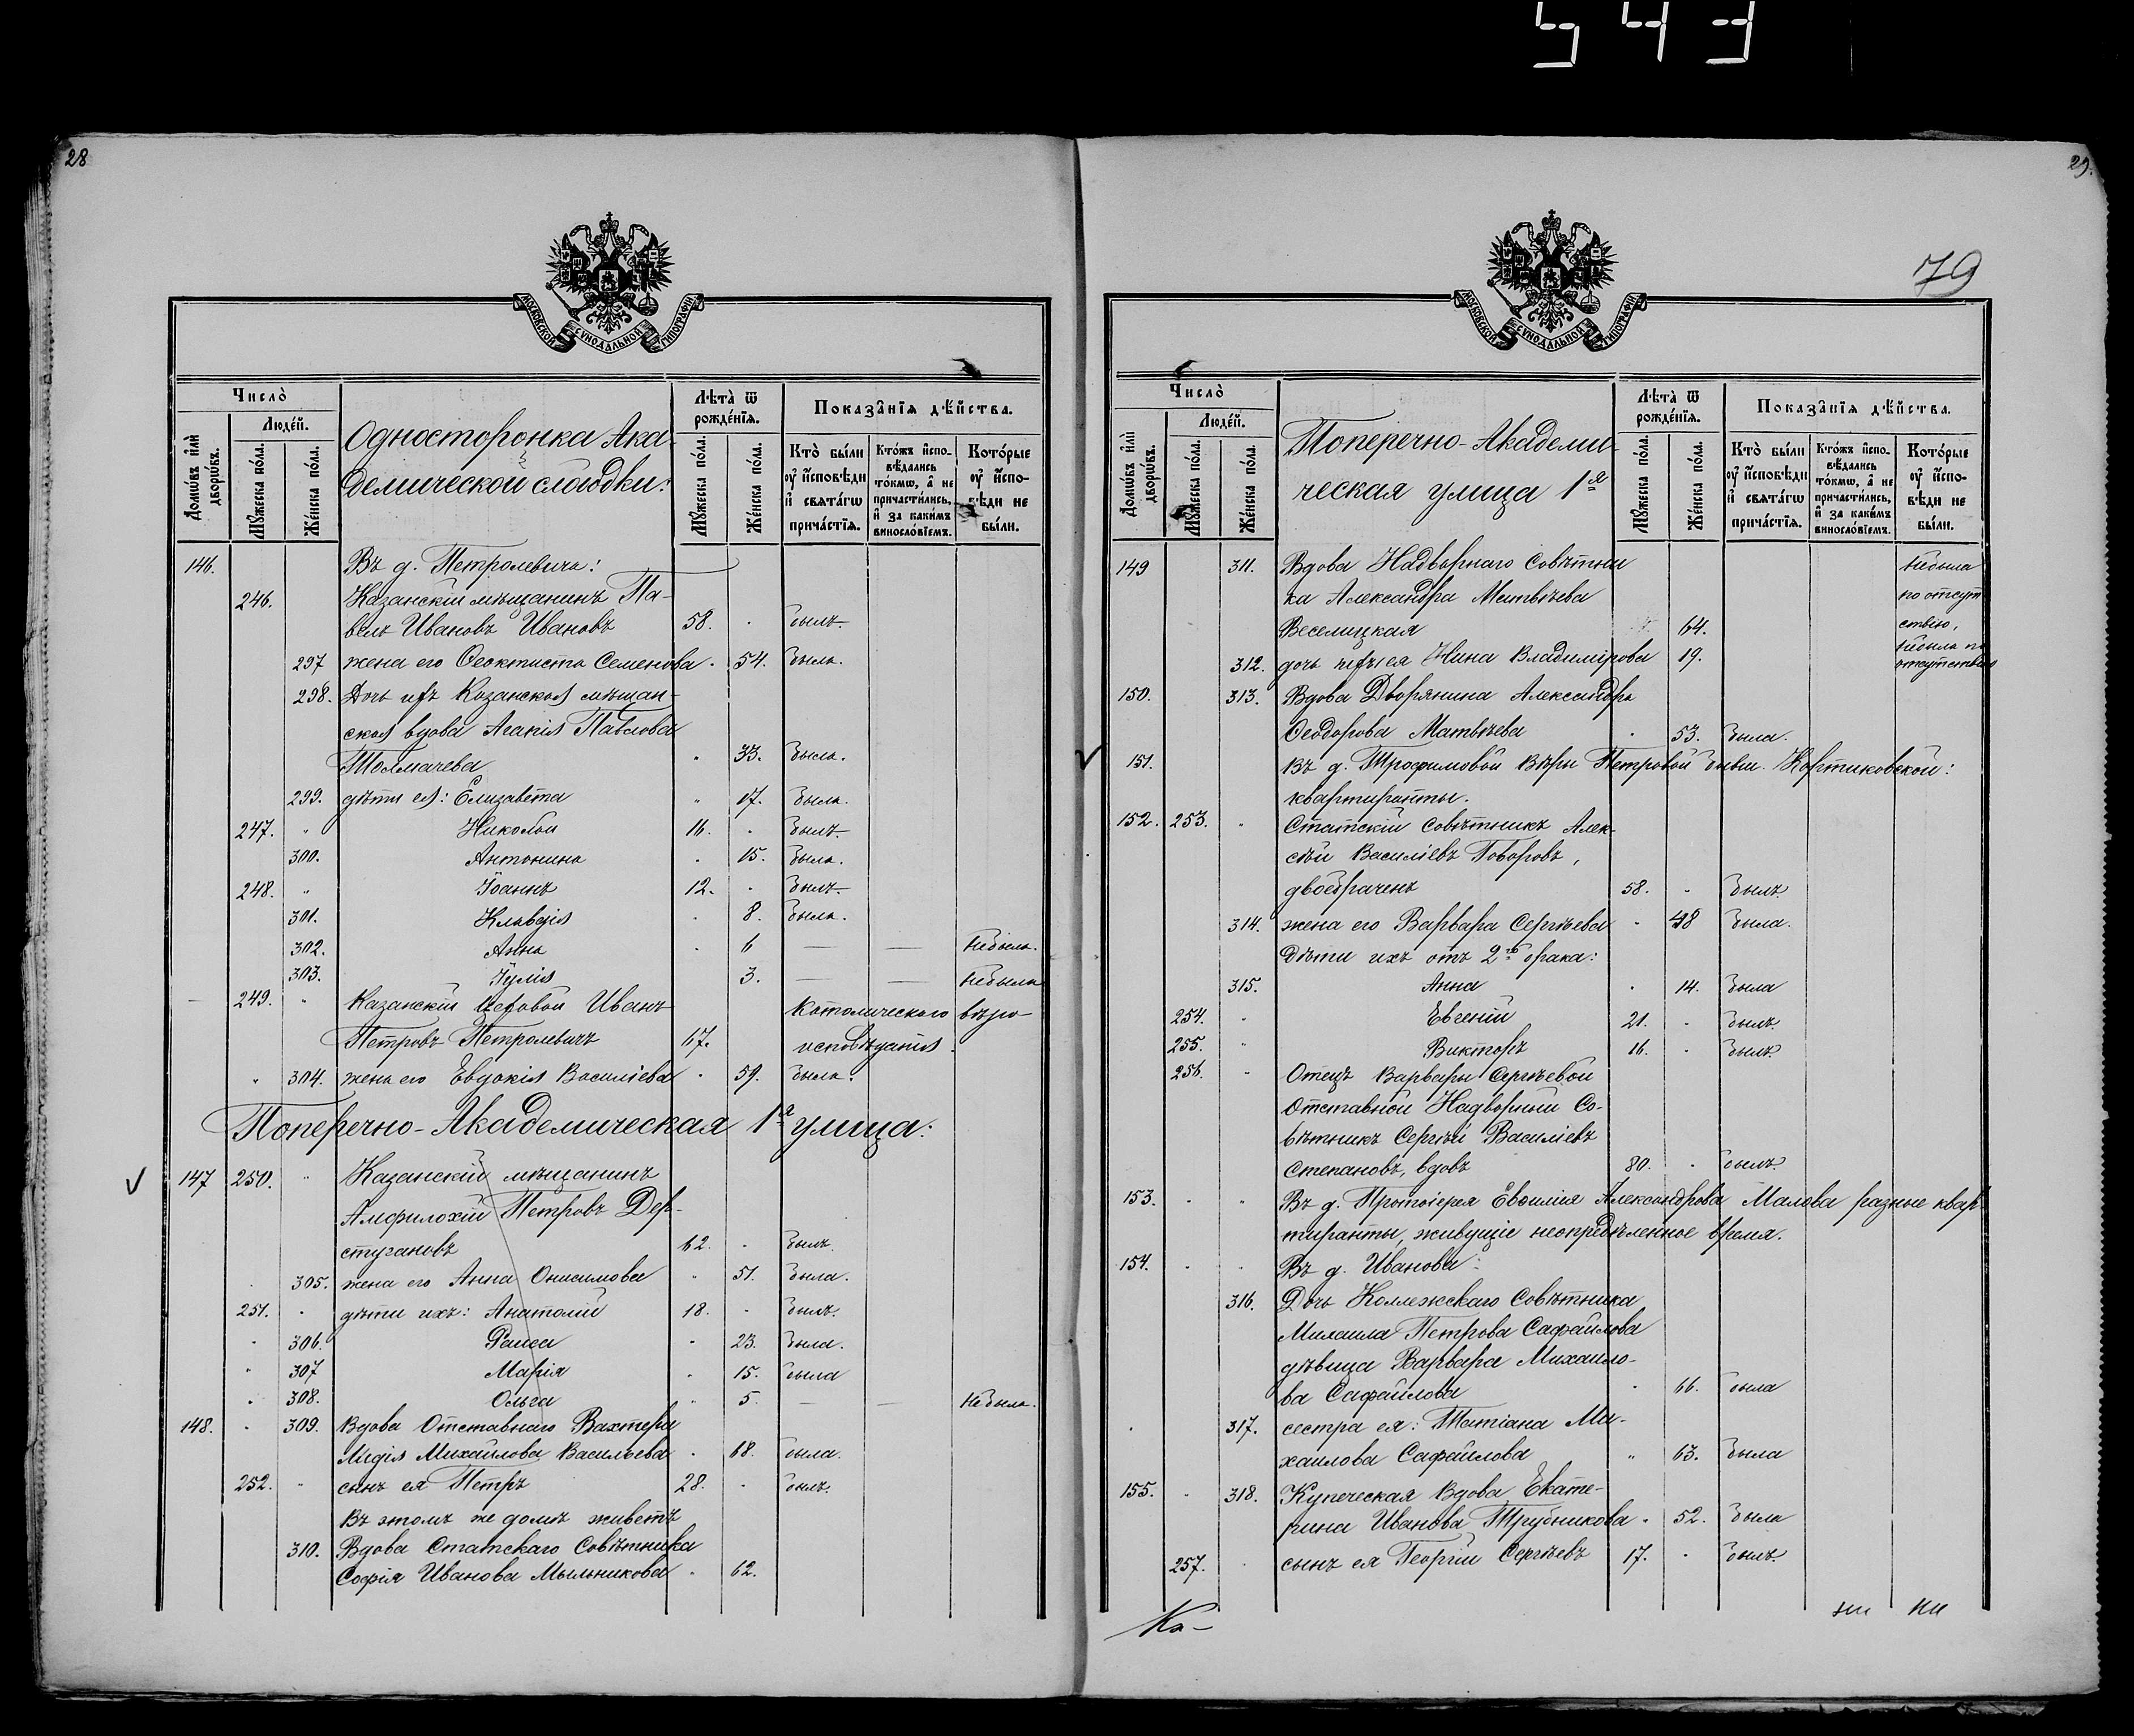 543
28
МОСКОВСКОЙ СѴНОДАЛЬНОЙ ТИПОГРАФІИ
Число̀
Домѡ́въ и҆лѝ дворѡ́въ.
Люде́й.
Мꙋ́жеска по́ла.
Же́нска по́ла.
Односторонка Ака-
демической слободки:
Лѣ́та ѿ рожде́нїя.
Мꙋ́жеска по́ла.
Же́нска по́ла.
Показа̑нїѧ дѣ́йства.
Кто̀ бы́ли ᲂу҆ и҆сповѣди и҆ свѧта́гѡ прича́стїѧ.
Кто́жъ и҆сповѣдались то́кмѡ, а҆ не причасти́лись, и҆ за каки́мъ винослóвїемъ.
Кото́рые ᲂу҆ и҆сповѣди не бы́ли.
146. Въ д. Петролевича:
246. Казанскій мѣщанинъ Па-
велъ Ивановъ Ивановъ 58. былъ.
297 жена его Ѳеоктиста Семенова 54. была.
298. Дочь ихъ Казанская мѣщан-
ская вдова Агапія Павлова
Толмачева 33. была.
299. дѣти ея: Елизавета 17. была.
247. Николай 16. былъ.
300. Антонина 15. была.
248. Іоаннъ 12. былъ.
301. Клавдія 8. была.
302. Анна 6 — — не была.
303. Іулія 3. — — не была
249. Казанскій цеховой Иванъ католическаго вѣро-
Петровъ Петролевичъ 67. исповѣданія.
304. жена его Евдокія Василіева 59. была.
Поперечно-Академическая 1я улица:
147 250. Казанскій мѣщанинъ
Амфилохій Петровъ Дер-
стугановъ 62. былъ.
305. жена его Анна Онисимова 51. была.
251. дѣти ихъ: Анатолій 18. былъ.
306. Раиса 23. была.
307 Марія 15. была
308. Ольга 5. — — не была.
148. 309. Вдова Отставнаго Вахтера
Лидія Михайлова Васильева 68. была.
252. сынъ ея Петръ 28. былъ.
Въ этомъ же домѣ живетъ
310. Вдова Статскаго Совѣтника
Софія Иванова Мыльникова 62.
29.
79
МОСКОВСКОЙ СѴНОДАЛЬНОЙ ТИПОГРАФІИ
Число̀
Домѡ́въ и҆лѝ дворѡ́въ.
Люде́й.
Мꙋ́жеска по́ла.
Же́нска по́ла.
Поперечно-Академи-
ческая улица 1я
Лѣ́та ѿ рожде́нїя.
Мꙋ́жеска по́ла.
Же́нска по́ла.
Показа̑нїѧ дѣ́йства.
Кто̀ бы́ли ᲂу҆ и҆сповѣди и҆ свѧта́гѡ прича́стїѧ.
Кто́жъ и҆сповѣдались то́кмѡ, а҆ не причасти́лись, и҆ за каки́мъ винослóвїемъ.
Кото́рые ᲂу҆ и҆сповѣди не бы́ли.
149 311. Вдова Надворнаго Совѣтни не была
ка Александра Матвѣева по отсут
Веселицкая 64. ствію,
312. дочь ея Нина Владимірова 19. не была по отсутствію
150. 313. Вдова Дворянина Александра
Ѳеодорова Матвѣева 53. была.
151. Въ д. Трофимовой Вѣры Петровой бывш. Кортиковской:
квартиранты.
152. 253. Статскій Совѣтникъ Алек-
сѣй Василіевъ Говоровъ,
двоебраченъ 58. былъ
314. жена его Варвара Сергѣева 48 была.
Дѣти ихъ отъ 2го брака:
315. Анна 14. была
254. Евгеній 21. былъ.
255. Викторъ 16. былъ.
256. Отецъ Варвары Сергѣевой
Отставной Надворный Со-
вѣтникъ Сергѣй Василіевъ
Степановъ, вдовъ 80. былъ.
153. Въ д. Протоіерея Евѳимія Александрова Малова разные квар
тиранты, живущіе неопредѣленное время.
154. Въ д. Иванова:
316. Дочь Коллежскаго Совѣтника
Михаила Петрова Сафайлова
дѣвица Варвара Михаило-
ва Сафайлова 66. была
317. сестра ея: Татіана Ми-
хаилова Сафайлова 63. была
155. 318. Купеческая Вдова Екате-
рина Иванова Трубникова 52. была
257. сынъ ея Георгій Сергѣевъ 17. былъ.
Ка-